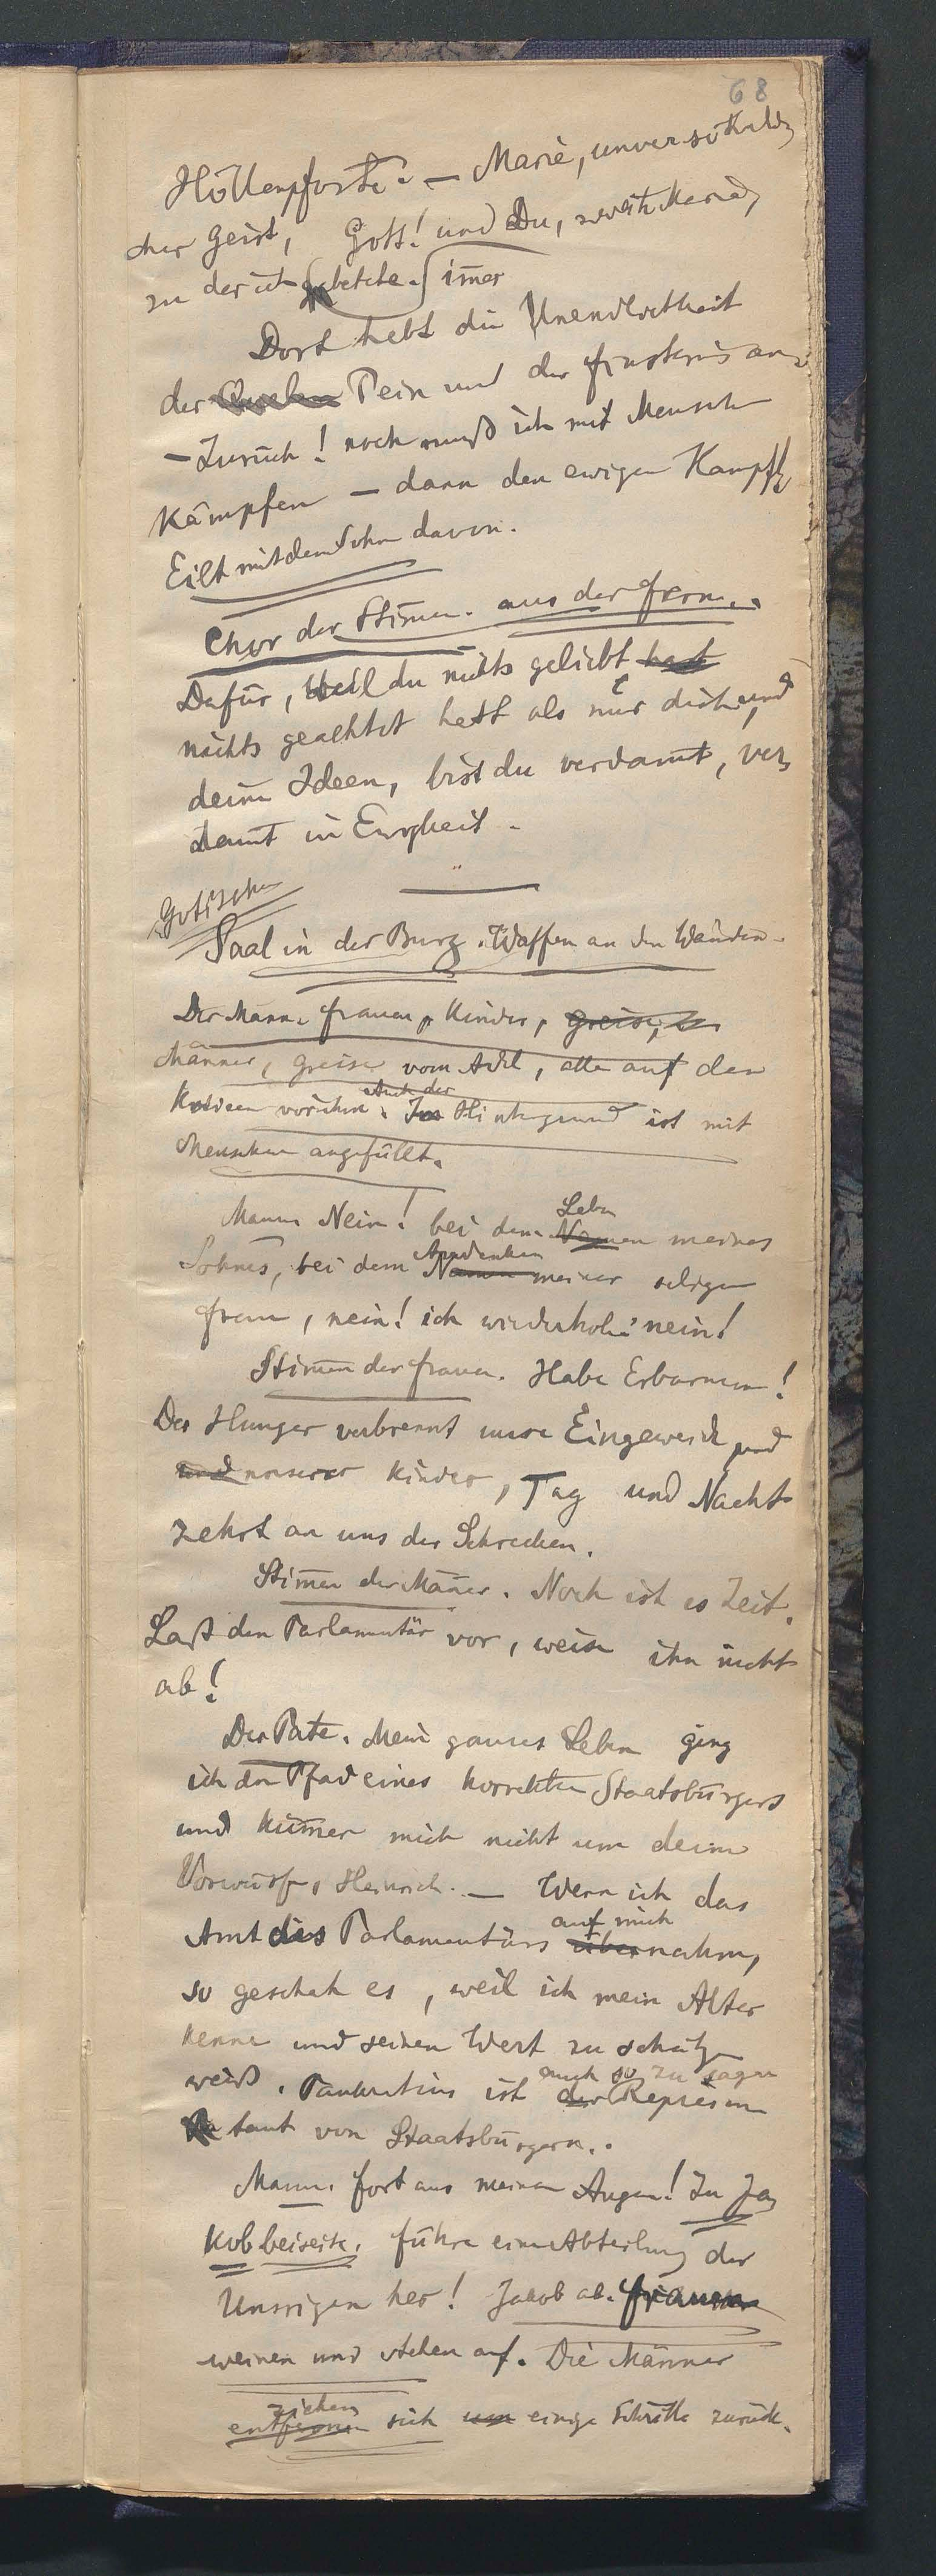 68
Höllenpforte. — Marie, unversöhnli-
cher Geist, Gott! und Du, zweite Marie,
zu der ich gebetete. immer
Dort hebt die Unendlichkeit
der Qualen Pein und der Finsternis an.
— Zurück! noch muß ich mit Menschen
kämpfen — dann den ewigen Kampf!
Eilt mit dem Sohn davon.
Chor der Stimmen. aus der Ferne.
Dafür, Weil du nichts geliebt hast
nichts geachtet hast als nur dich und
deine Ideen, bist du verdammt, ver-
dammt in Ewigkeit.
Gotischer
Saal in der Burg. Waffen an den Wänden.
Der Mann. Frauen, Kinder, Greise, der
Männer, Greise vom Adel, alle auf den
Auch der
Knieen vor ihm. Im Hintergrund ist mit
Menschen angefüllt.
Leben
Mann Nein! bei dem Namen meines
Andenken
Sohnes, bei dem Namen meiner seligen
Frau, nein! ich wiederhole: nein!
Stimmen der Frauen. Habe Erbarmen!
Der Hunger verbrennt unsre Eingeweide und
und unserer Kinder, Tag und Nacht
zehrt an uns der Schrecken.
Stimmen der Männer. Noch ist es Zeit.
Laß den Parlamentär vor, weise ihn nicht
ab!
Der Pate. Mein ganzes Leben ging
ich den Pfad eines korrekten Staatsbürgers
und kümmer mich nicht um deine
Vorwürfe, Heinrich. — Wenn ich das
auf mich
Amt des Parlamentärs übernahm,
so geschah es, weil ich mein Alter
kenne und seinen Wert zu schätzen
auch so zu sagen
weiß. Pankratius ist der Repräsen
tant von Staatsbürgern.
Mann. Fort aus meinen Augen! Zu Ja-
kob beiseite. Führe eine Abteilung der
Unsrigen her! Jakob ab. Frauen
weinen und stehen auf. Die Männer
ziehen
entfernen sich um einige Schritte zurück.